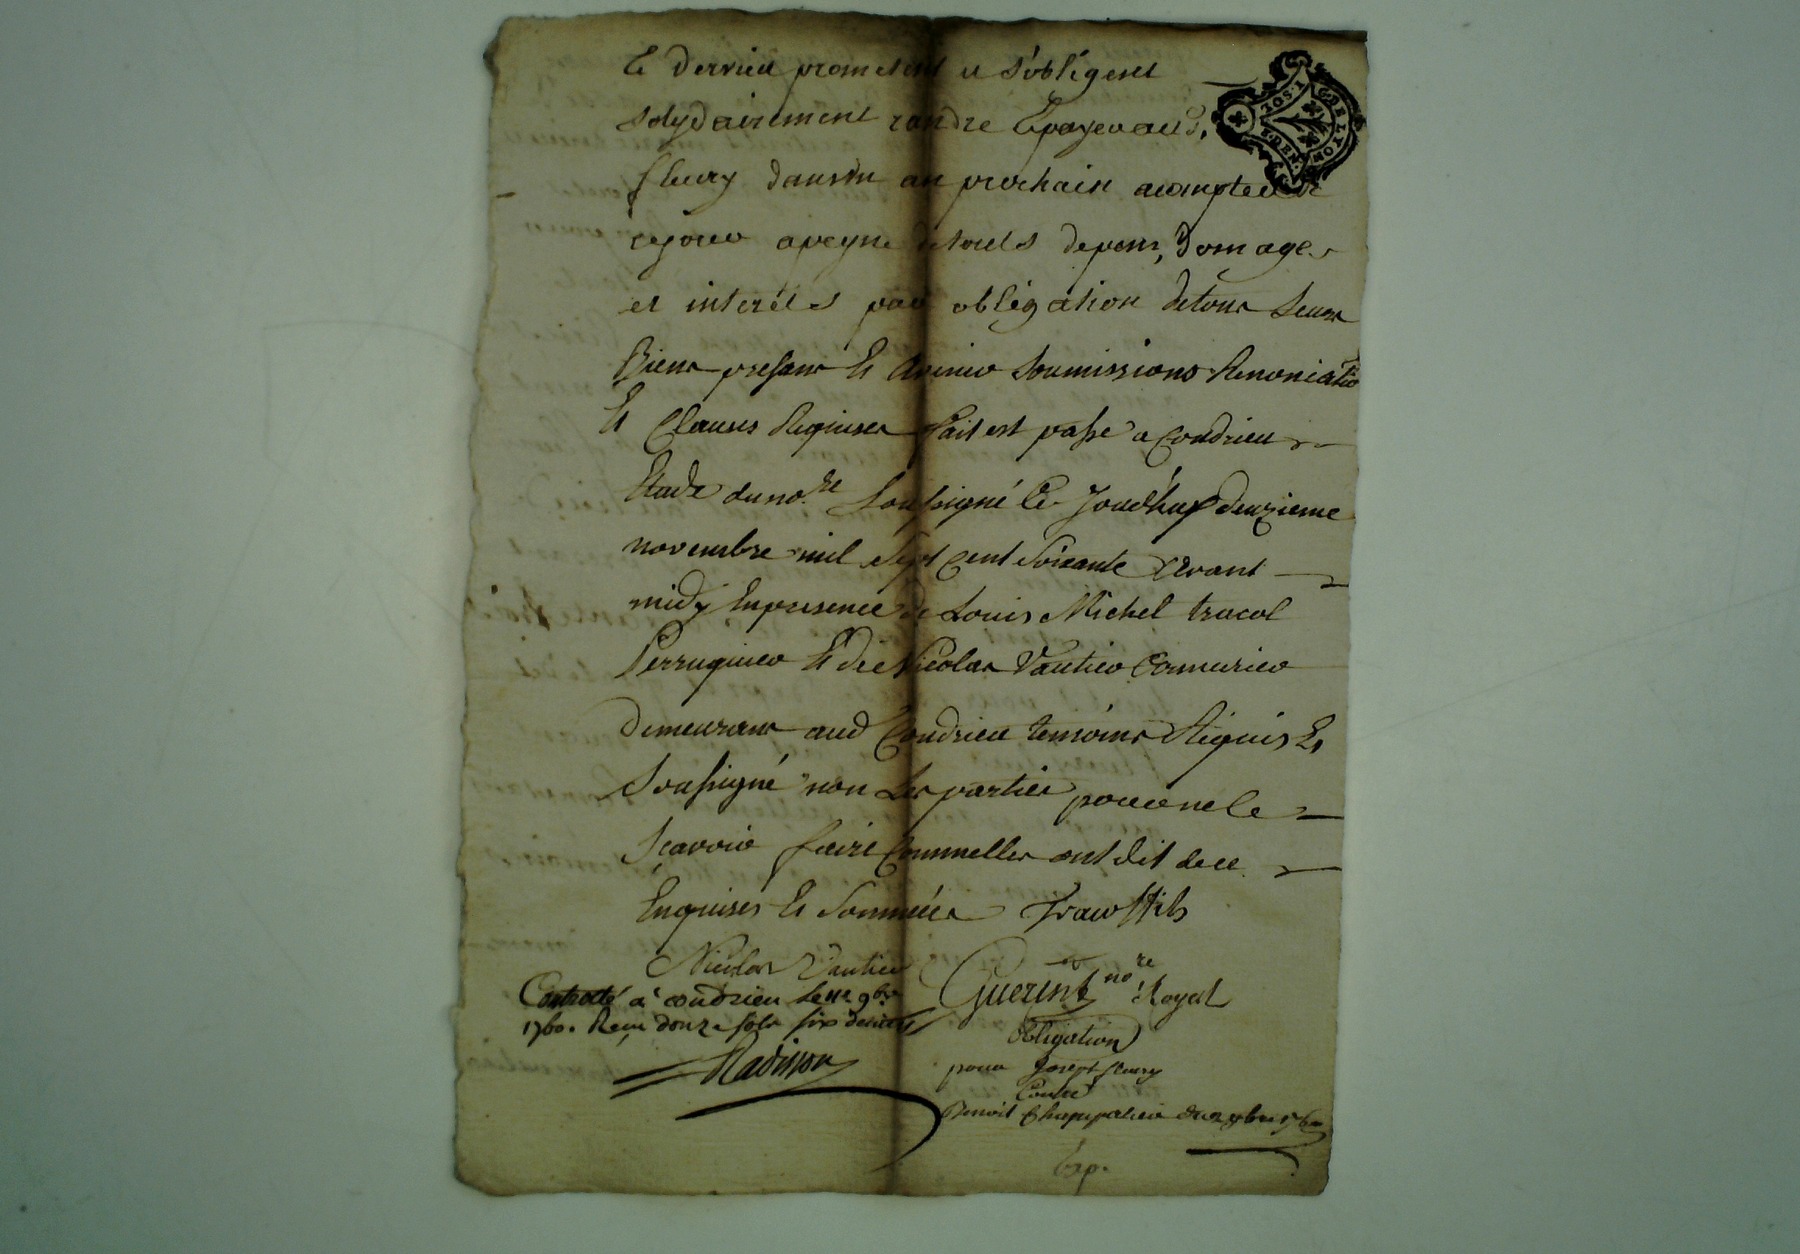 Le dernier prometent et s'obligent
solydairement randre Et payer aud.
fleury dans un an prochain a compter de
ce jour a peyne de touts depens, domages
et interéts par obligation de tous Leurs
Biens presans Et Avenir soumissions Renonciatio
Et Clauses Requises fait est passé a Condrieu
Etude du no.re soussigné Le Joudhuy deuzieme
novembre mil sept cent soixante avant
midy En presence de Louis Michel tracol
Perruquier Et de Nicolas Vautier
demeurans aud Condrieu temoins Requis Et
soussigné non Les parties pour ne le
sçavoir faire Commelles ont dit de ce
Enquises Et sommées
Nicolas Vautier
Guerin no.re Royal
Controllé a condrieu le 9bre
1760. Reçu douze sols six deniers
Radisson
obligation
pour Joseph fleury
Contre
Benoit du 2 9bre 1760
Exp.
TOS.I
G.DE LYON
2.DEN.